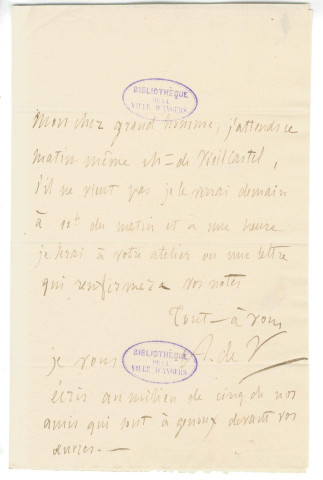 BIBLIOTHÈQUE
DE LA
VILLE D'ANGERS
Mon cher grand homme, j'attends ce
matin même Mr de Vieilcastel,
s'il ne vient pas je le verrai demain
à 11h du matin et à une heure
je serai à votre atelier ou une lettre
qui renfermera vos notes
Tout-à vous
A. de V
BIBLIOTHÈQUE
DE LA
VILLE D'ANGERS
je vous
écris au milieu de cinq de nos
amis qui sont à genoux devant vos
œuvres.—